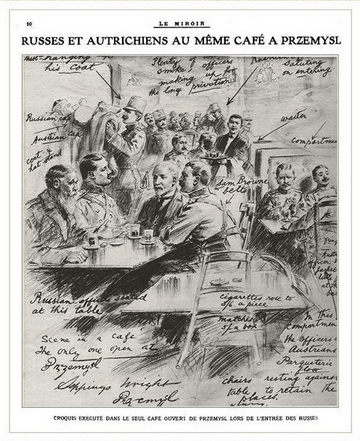 20
LE MIROIR
RUSSES ET AUTRICHIENS AU MÊME CAFÉ A PRZEMYSL
his coat
Plenty of officers
smoke
making up for
the long privation
Saluting
on entering
Russian cap
Austrian cap
coat &
hat stand
waiter
compartment
Sam Browne
belts
Russian officers seated
at this table
cigarettes rose to
a piece
matches
of a box
In this
compartment
the officers
Austrians
Parqueterie
floor
chairs resting against
table to retain the
places
Scene in a cafe
The only one open at
Przemysl
Seppings Wright
Przemysl
CROQUIS EXECUTÉ DANS LE SEUL CAFÉ OUVERT DE PRZEMYSL LORS DE L'ENTRÉE DES RUSSES